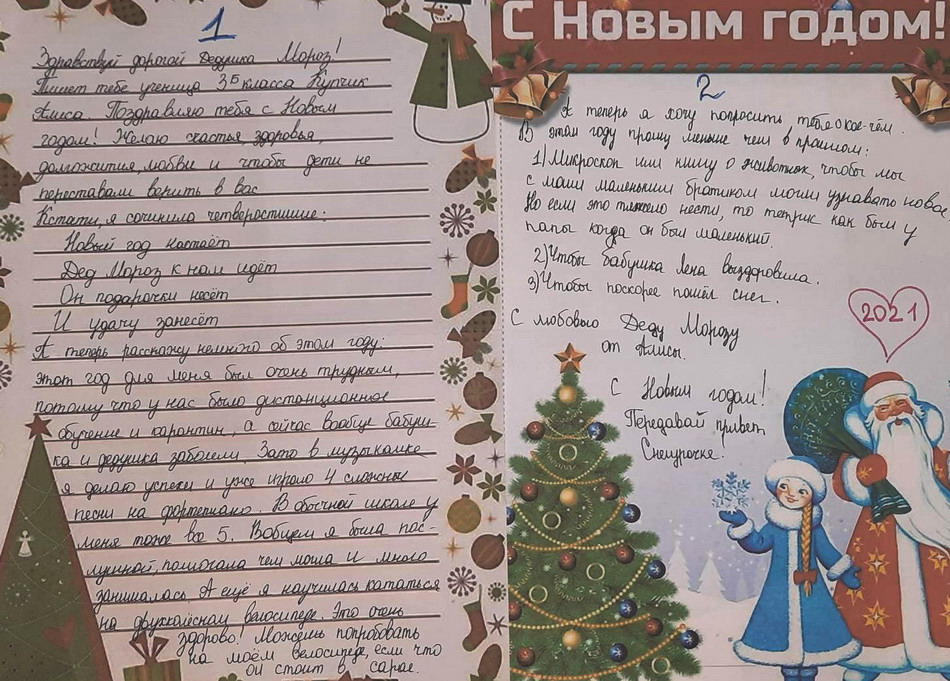 1
Здравствуй дорогой Дедушка Мороз!
Пишет тебе ученица 3Б класса Купчик
Алиса. Поздравляю тебя с Новым
годом! Желаю счастья, здоровья,
долгожития, любви и чтобы дети не
переставали верить в вас
Кстати, я сочинила четверостишие:
Новый год настаёт
Дед Мороз к нам идёт
Он подарочки несёт
И удачу занесёт
А теперь расскажу немного об этом году:
этот год для меня был очень трудным,
потому что у нас было дистанционное
обучение и карантин, а сейчас вообще бабуш-
ка и дедушка заболели. Зато в музыкалке
я делаю успехи и уже играю 4 сложные
песни на фортепиано. В обычной школе у
меня тоже все 5. Вобщем я была пос-
лушной, помогала чем могла и много
занималась А ещё я научилась кататься
на двухколёсном велосипеде. Это очень
здорово! Можешь попробовать
на моём велосипеде, если что
он стоит в сарае.
С Новым годом!
2
А теперь я хочу попросить тебя о кое-чём.
В этом году прошу меньше чем в прошлом:
1) Микроскоп или книгу о животных, чтобы мы
с моим маленьким братиком могли узнавать новое.
Но если это тяжело нести, то тетрис как был у
папы когда он был маленький.
2) Чтобы бабушка Лена выздоровила.
3) Чтобы поскорее пошёл снег.
С любовью Деду Морозу
от Алисы.
2021
С Новым годом!
Передавай привет
Снегурочке.